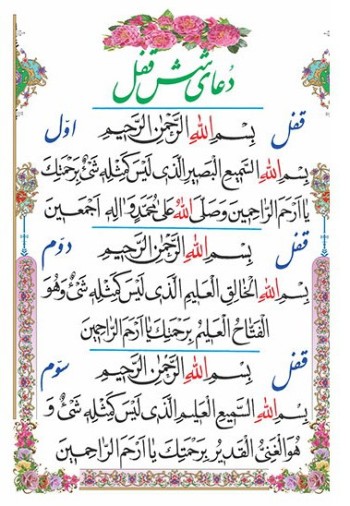 دُعای شش قفل
قفل بِسْمِ اللهِ الرَّحْمٰنِ الرَّحِیْمِ اوّل
بِسْمِ اللهِ السَّمِیْعِ الْبَصِیْرِ الَّذِیْ لَیْسَ کَمِثْلِهٖ شَیْءٌ بِرَحْمَتِكَ
یَا اَرْحَمَ الرَّاحِمِیْنَ وَصَلَّی اللهُ عَلٰی مُحَمَّدٍ وَاٰلِهٖ اَجْمَعِیْنَ
قفل بِسْمِ اللهِ الرَّحْمٰنِ الرَّحِیْمِ دوّم
بِسْمِ اللهِ الْخَالِقِ الْعَلِیْمِ الَّذِیْ لَیْسَ کَمِثْلِهٖ شَیْءٌ وَهُوَ
الْفَتَّاحُ الْعَلِیْمُ بِرَحْمَتِكَ یَا اَرْحَمَ الرَّاحِمِیْنَ
قفل بِسْمِ اللهِ الرَّحْمٰنِ الرَّحِیْمِ سوّم
بِسْمِ اللهِ السَّمِیْعِ الْعَلِیْمِ الَّذِیْ لَیْسَ کَمِثْلِهٖ شَیْءٌ وَ
هُوَ الْغَنِیُّ الْقَدِیْرُ بِرَحْمَتِكَ یَا اَرْحَمَ الرَّاحِمِیْنَ